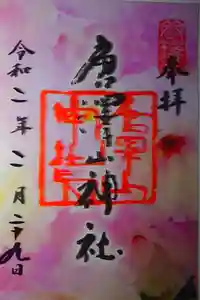 奉拝
唐澤山神社
令和二年二月二十九日